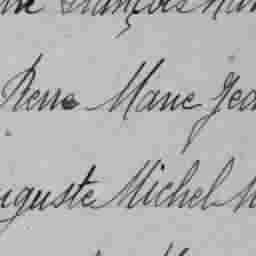 François
Pierre Marie Jea
uguste Michel M